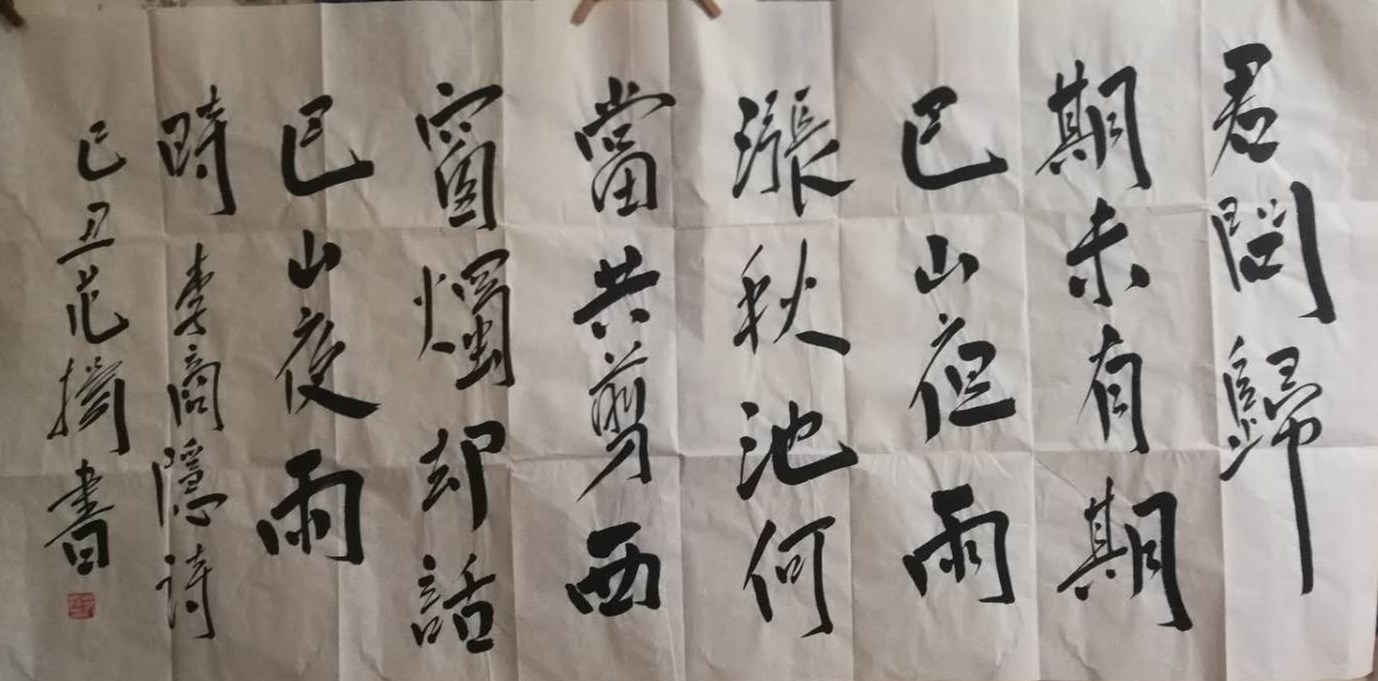 君問歸
期未有期
巴山夜雨
漲秋池何
當共剪西
窗燭却話
巴山夜雨
時 李商隱詩
己丑范書